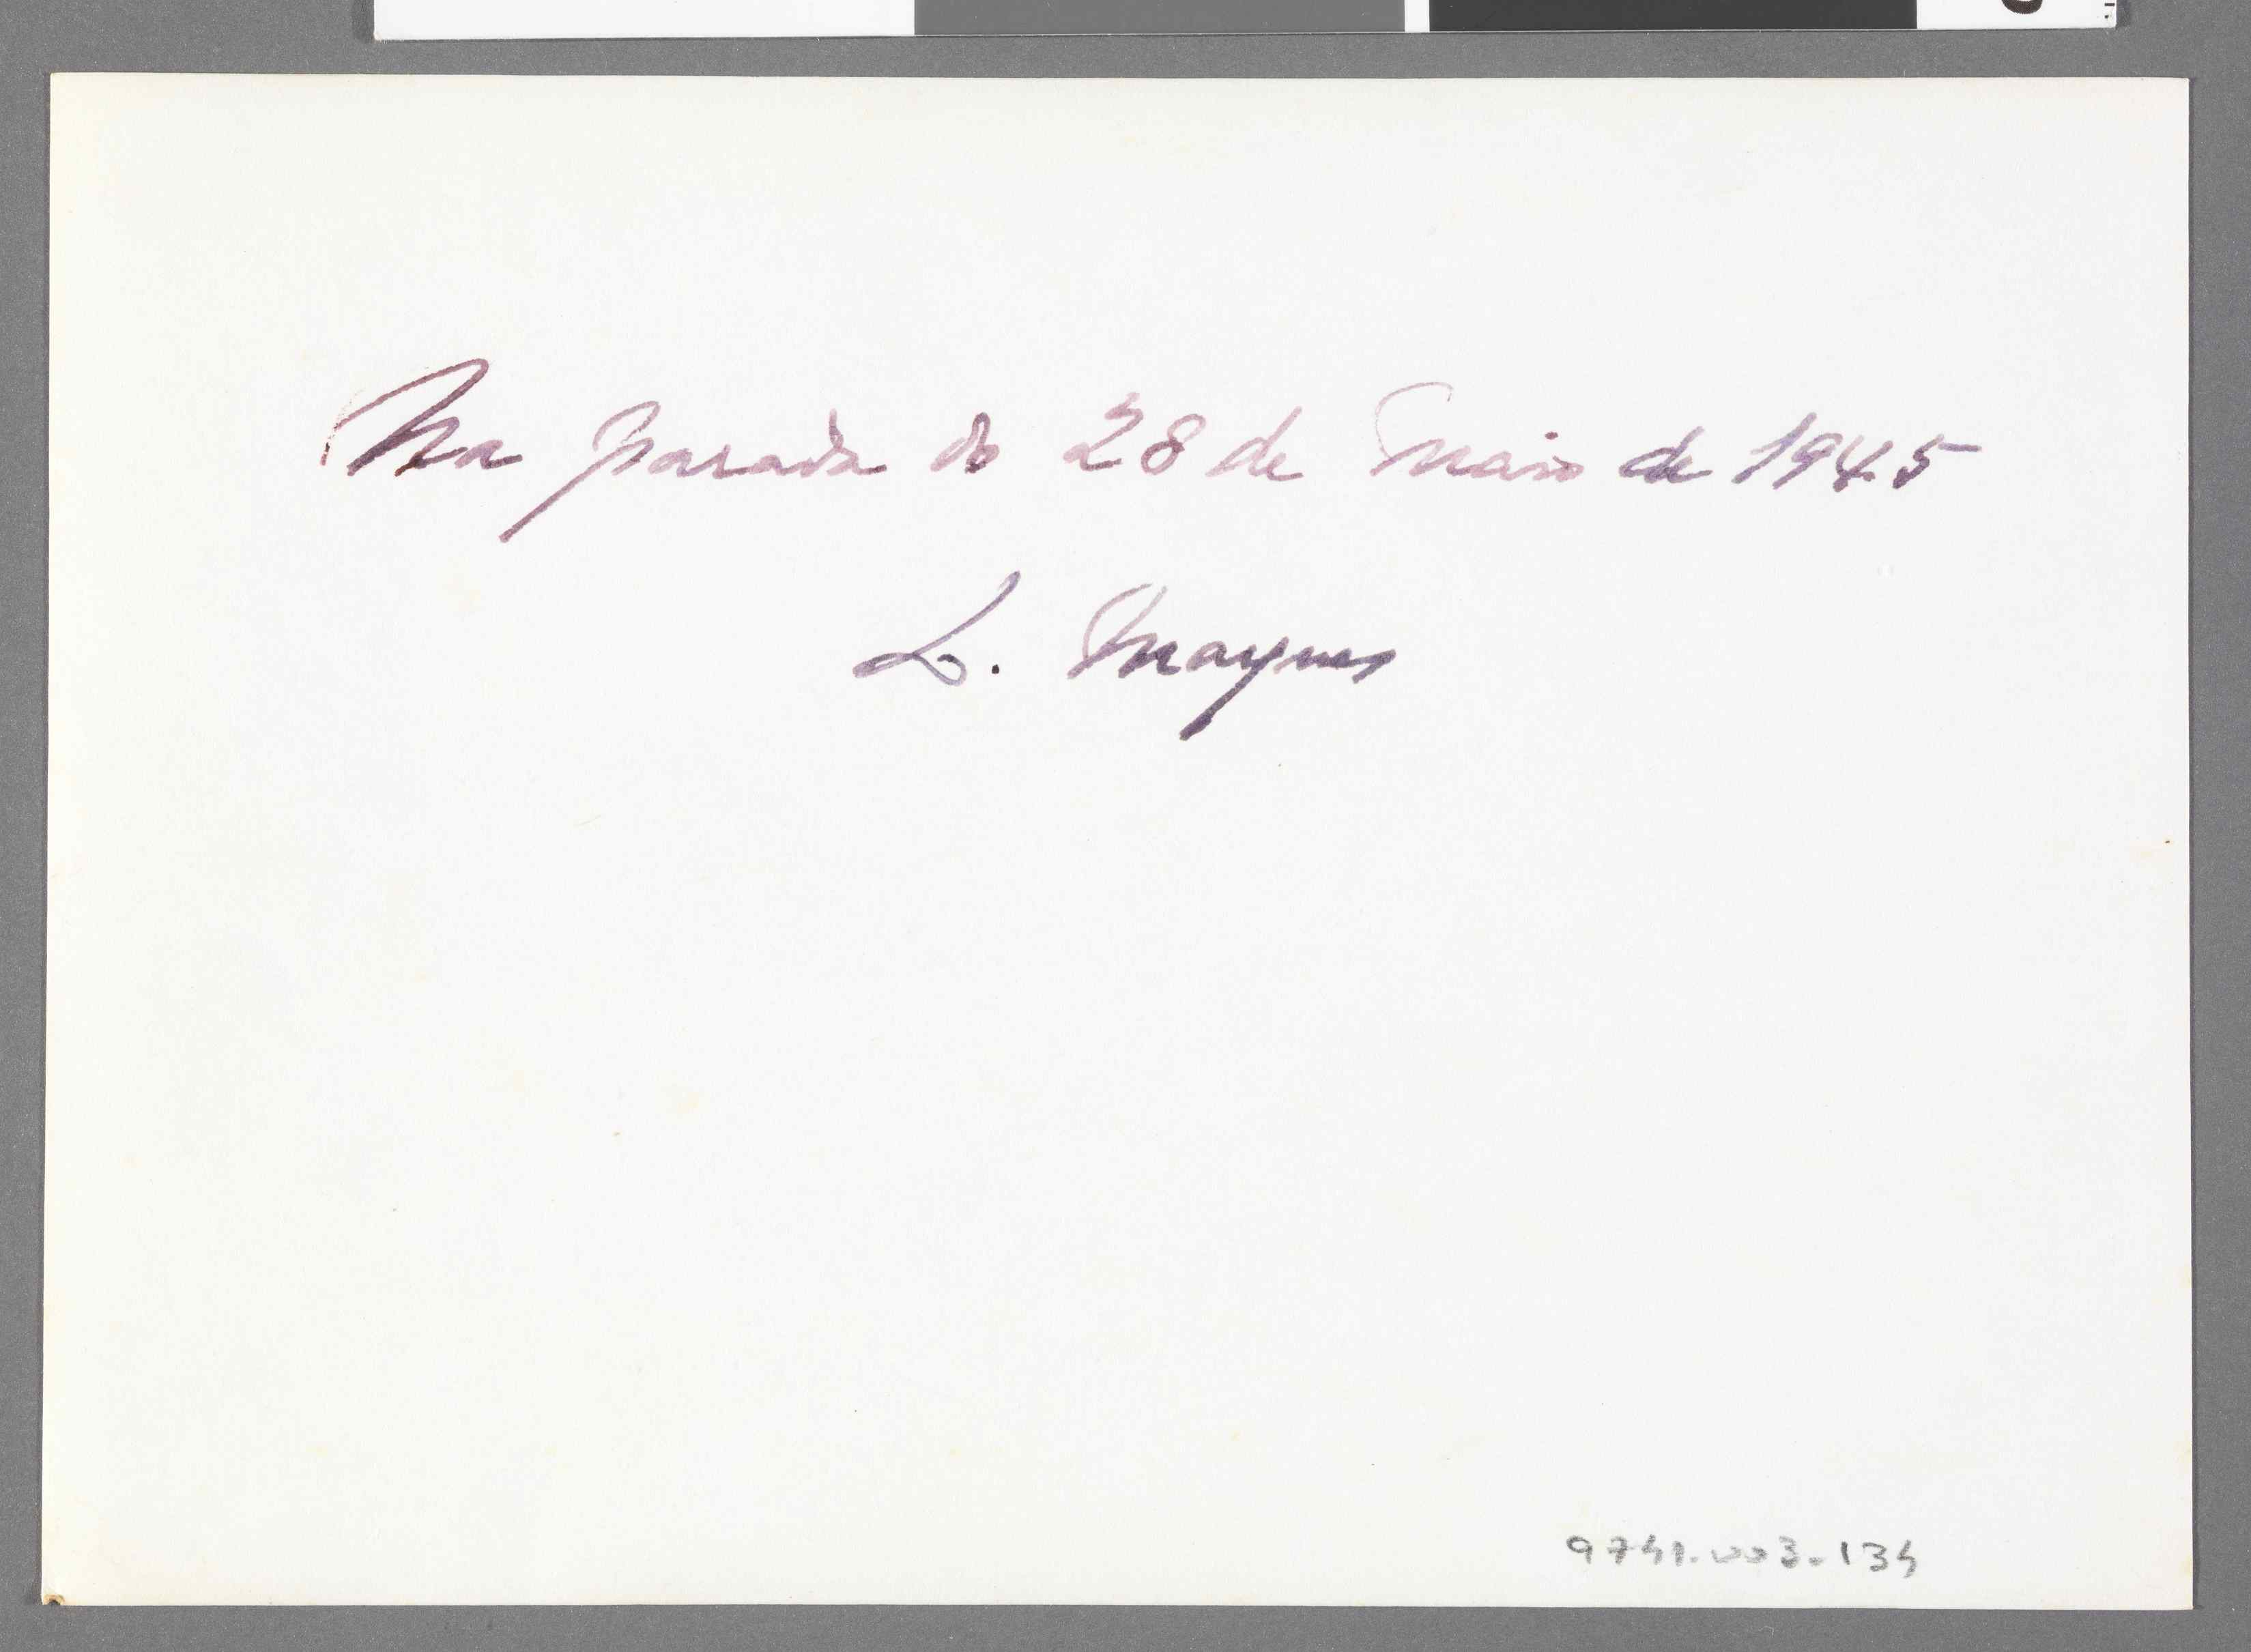 Na parada do 28 de Maio de 1945
L. Marques
9741.003.134